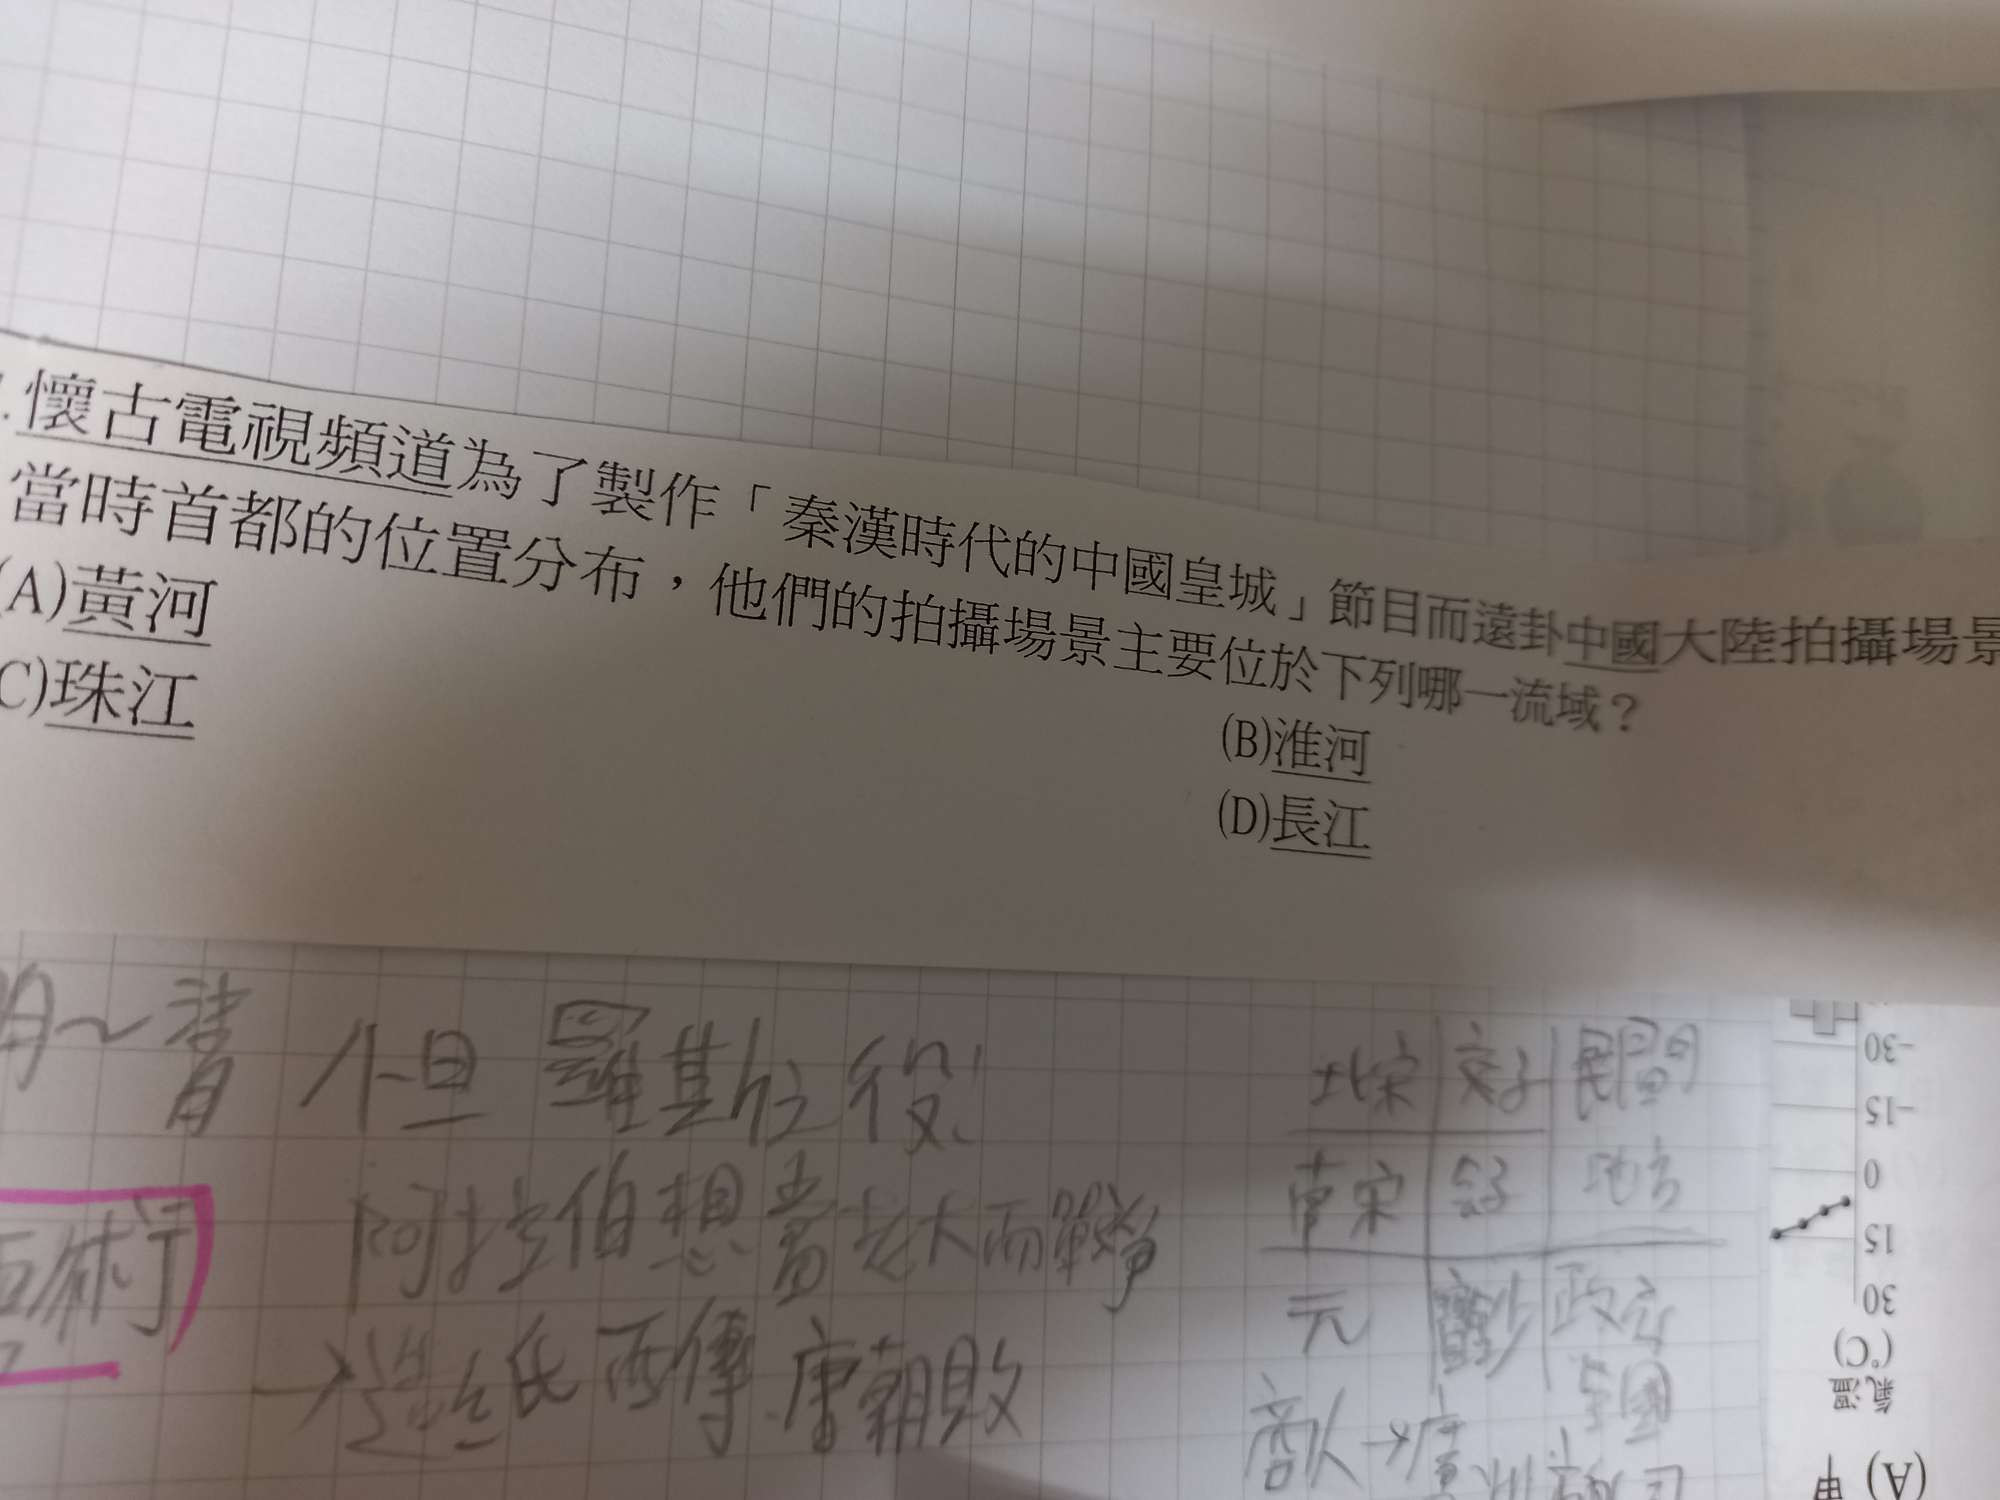 .懷古電視頻道為了製作「秦漢時代的中國皇城」節目而遠卦中國大陸拍攝場景
當時首都的位置分布，他們的拍攝場景主要位於下列哪一流域？
(A)黃河
(B)淮河
C)珠江
(D)長江
明~清
怛羅斯之役
北宋 交子 民間
阿拉伯想當老大而戰爭
南宋 會子 地方
術
元 寶鈔 政府
全國
→造紙西傳、唐朝敗
商人→
-30
-15
0
15
30
(°C)
氣溫
(A) 甲